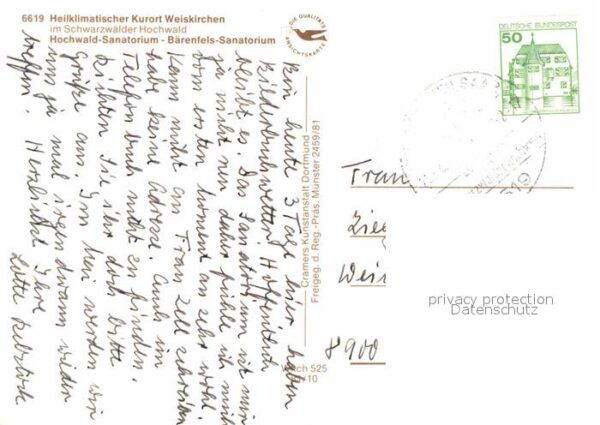 6619 Heilklimatischer Kurort Weiskirchen
im Schwarzwälder Hochwald
Hochwald-Sanatorium - Bärenfels-Sanatorium
DIE QUALITÄTS
ANSICHTSKARTE
DEUTSCHE BUNDESPOST
50
Bin heute 3 Tage hier, haben
Bilderbuchwetter. Hoffentlich
bleibt es. Das Sanatorium ist mir
ja nicht neu daher fühle ich mich
vom ersten Moment an sehr wohl.
Kann nicht an Frau Zell schreiben
habe keine Adresse. Auch im
Telefonbuch nicht zu finden.
Richten Sie ihr doch bitte
Grüße aus. Im Mai werden wir
uns ja mal irgendwann wieder
treffen. Herzlichst Ihre
Lotte
Cramers Kunstanstalt Dortmund
Freigeg. d. Reg.-Präs. Münster 2459/81
525
/10
Frau
Zieg
Wei
8900
privacy protection
Datenschutz